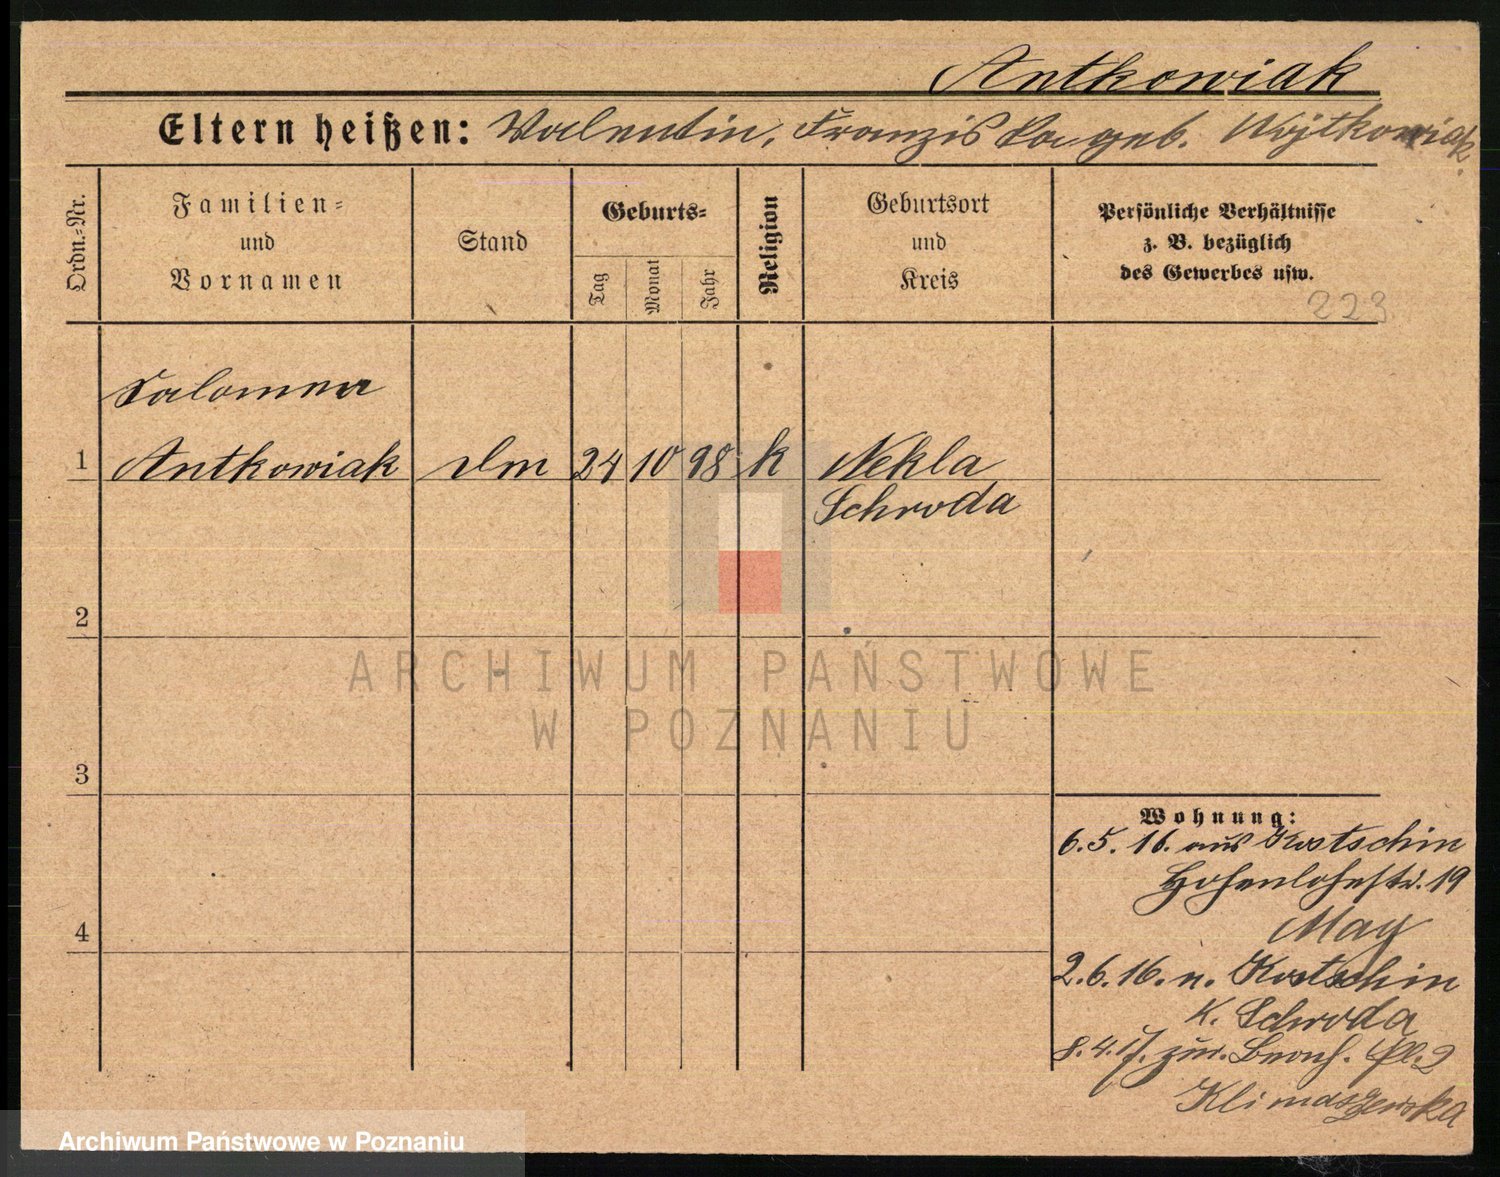 Antkowiak
Eltern heißen: Valentin, Franziska geb. Wojtkowiak
Ordn.-Nr.
Familien- und Vornamen
Stand
Geburts-
Tag
Monat
Jahr
Religion
Geburtsort und Kreis
Persönliche Verhältnisse
z. B. bezüglich
des Gewerbes usw.
223
Salomea
1 Antkowiak dm 24 10 98 k Nekla
Schroda
2
3
4
Wohnung:
6.5.16. aus Kostschin
Hohenlohestr. 19
May
2.6.16. n. Kostschin
K. Schroda
8.4.17. zur. Pl. 2
Klimaszewska
ARCHIWUM PAŃSTWOWE
W POZNANIU
Archiwum Państwowe w Poznaniu